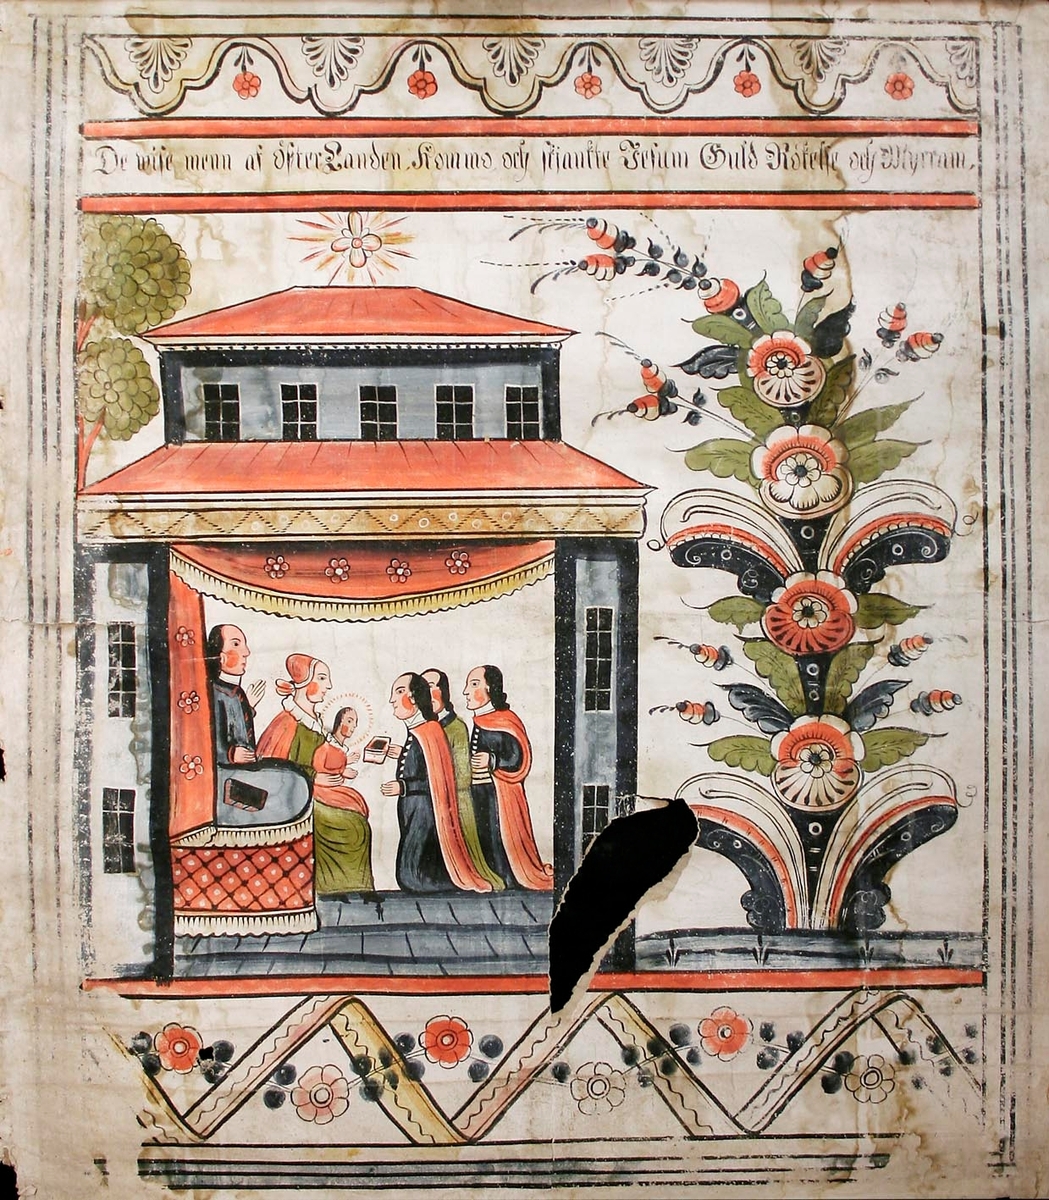 De wise menn af ÖsterLanden Kommo och skjankte Jesum Guld Rökelse och Myrram.